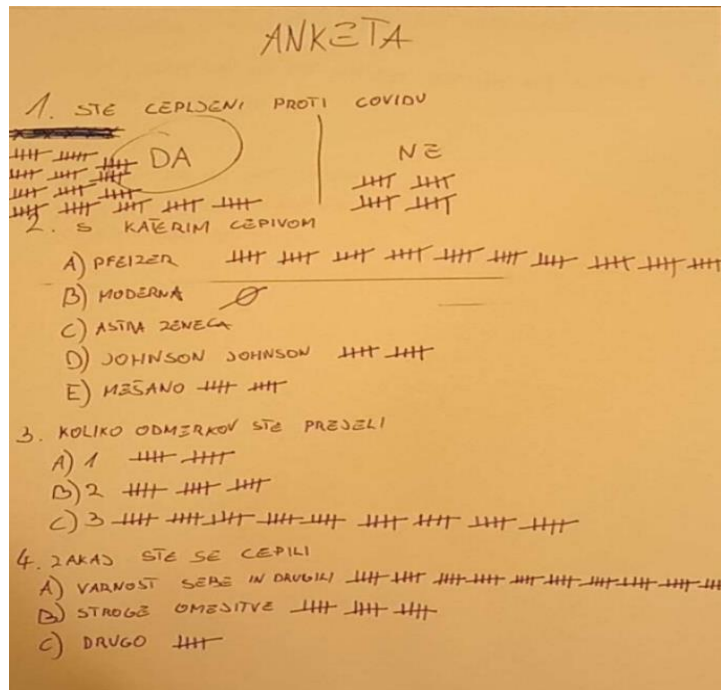 ANKETA
1. STE CEPLJENI PROTI COVIDU
DA
NE
2. S KATERIM CEPIVOM
A) PFEIZER
B) MODERNA Ø
C) ASTRA ZENECA
D) JOHNSON JOHNSON
E) MEŠANO
3. KOLIKO ODMERKOV STE PREJELI
A) 1
B) 2
C) 3
4. ZAKAJ STE SE CEPILI
A) VARNOST SEBE IN DRUGIH
B) STROGE OMEJITVE
C) DRUGO